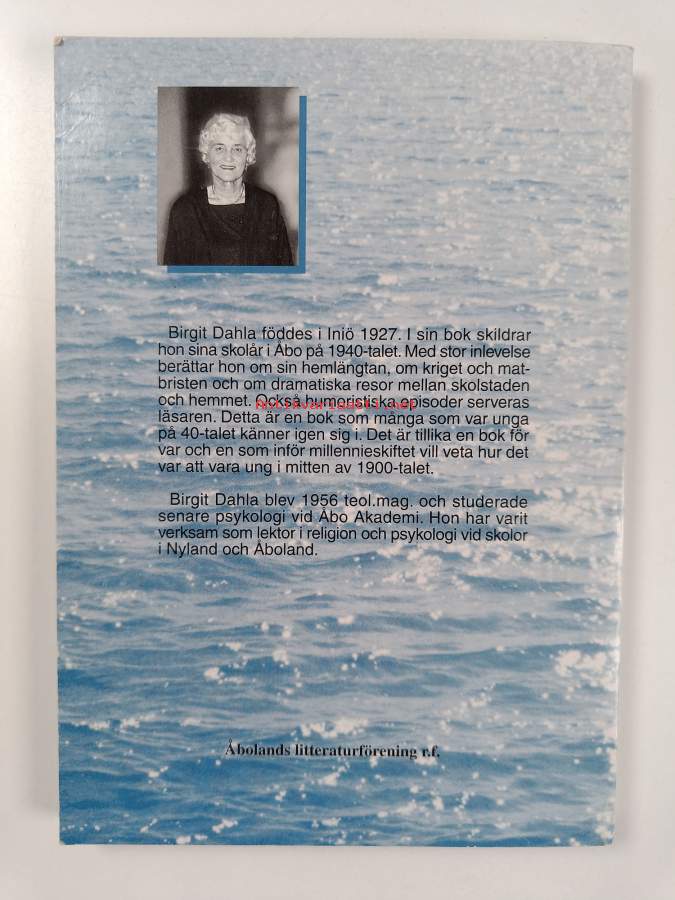 Birgit Dahla föddes i Iniö 1927. I sin bok skildrar
hon sina skolår i Åbo på 1940-talet. Med stor inlevelse
berättar hon om sin hemlängtan, om kriget och mat-
bristen och om dramatiska resor mellan skolstaden
och hemmet. Också humoristiska episoder serveras
Antikvariaatti.net
läsaren. Detta är en bok som många som var unga
på 40-talet känner igen sig i. Det är tillika en bok för
var och en som inför millennieskiftet vill veta hur det
var att vara ung i mitten av 1900-talet.
Birgit Dahla blev 1956 teol.mag. och studerade
senare psykologi vid Åbo Akademi. Hon har varit
verksam som lektor i religion och psykologi vid skolor
i Nyland och Åboland.
Åbolands litteraturförening r.f.